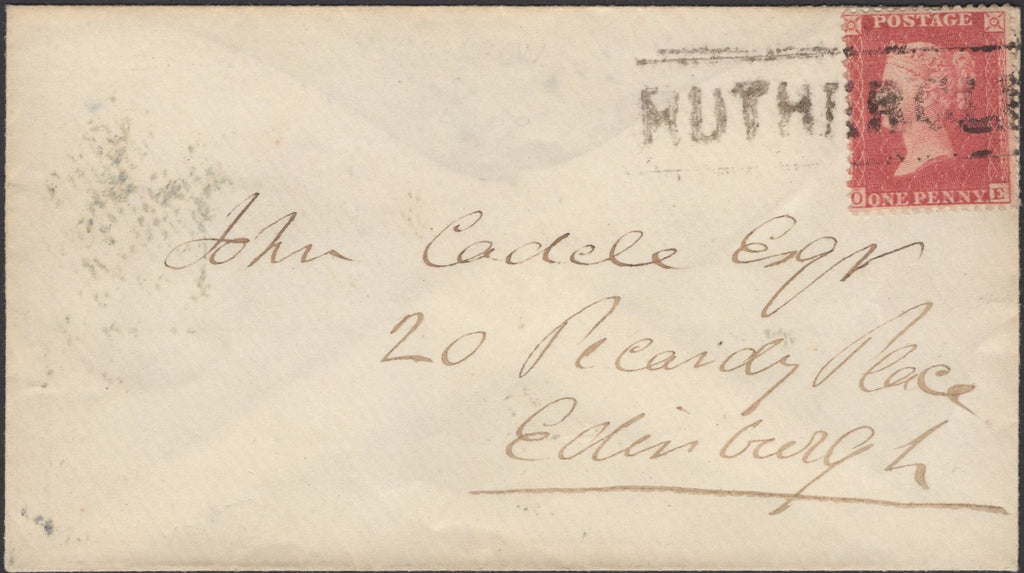 POSTAGE
RUTHERGLE
O ONE PENNY E
John Cadell Esqr
20 Picardy Place
Edinburgh